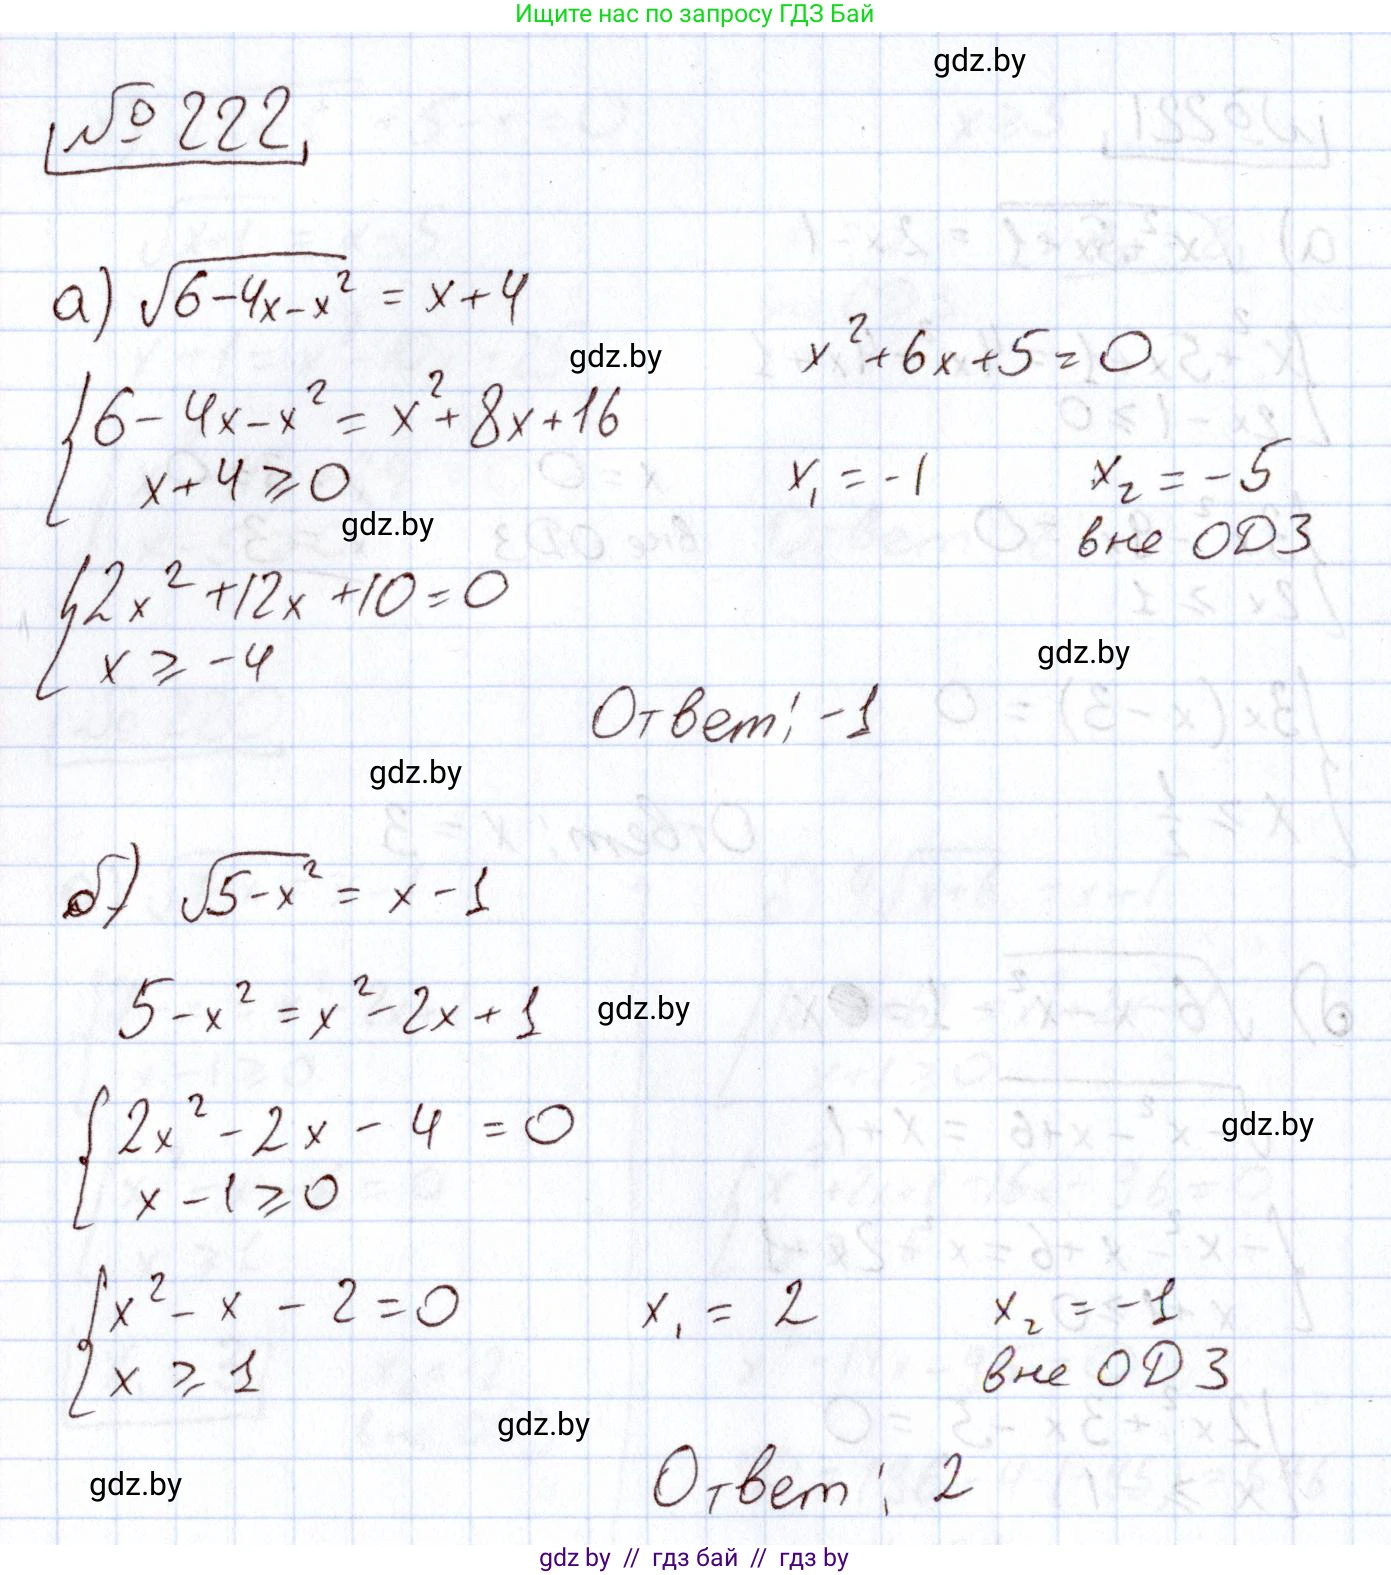 Ищите нас по запросу ГДЗ Бай
gdz.by
№ 222
а) √(6-4x-x²) = x+4
gdz.by
x²+6x+5=0
{ 6-4x-x² = x²+8x+16
x+4 ⩾ 0
x₁ = -1 x₂ = -5
вне ОДЗ
gdz.by
{ 2x²+12x+10=0
x ⩾ -4
gdz.by
Ответ: -1
gdz.by
б) √(5-x²) = x-1
5-x² = x²-2x+1
gdz.by
{ 2x²-2x-4=0
x-1 ⩾ 0
gdz.by
{ x²-x-2=0
x ⩾ 1
x₁ = 2 x₂ = -1
вне ОДЗ
gdz.by
gdz.by
Ответ: 2
gdz by // гдз бай // гдз by